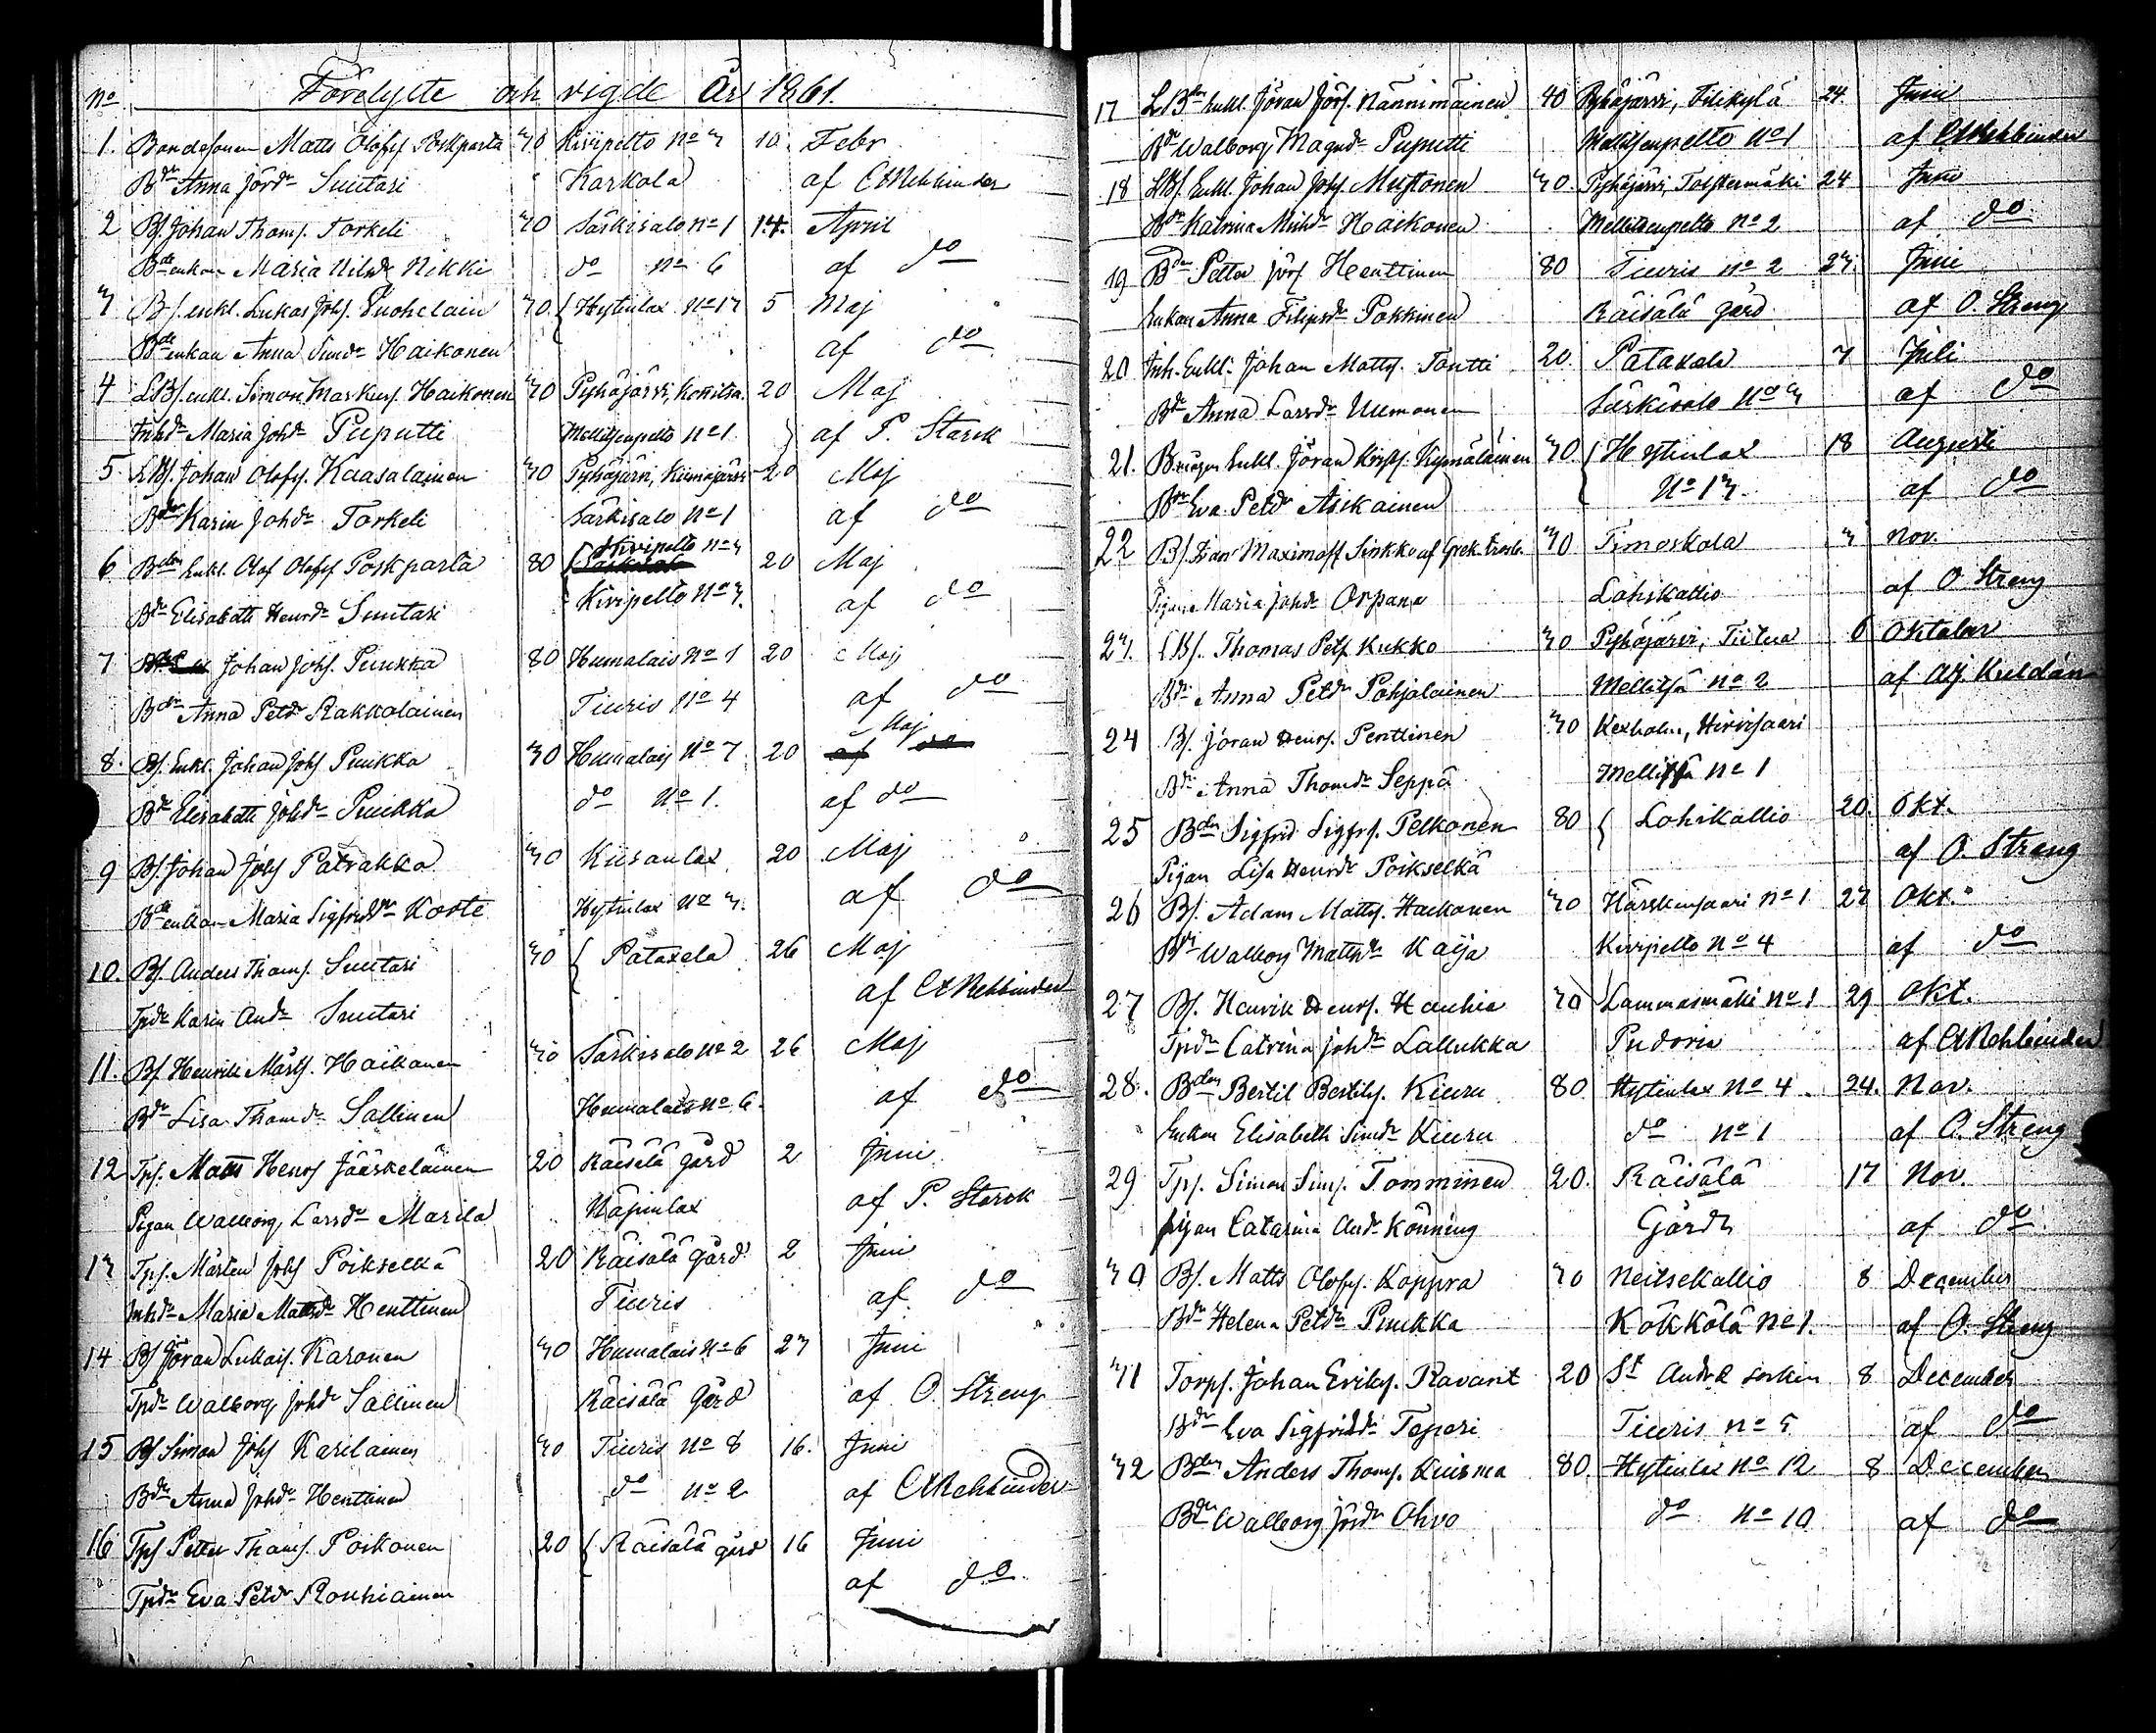 No Förelyste och vigde År 1861.
1. Bondesonen Matts Olofss Poskparta 30 Kivipelto No 3 10. Febr
Bdr Anna Jördr Suutari Karkola af CARehbinder
2 Bs. Johan Thoms. Torkeli 30 Särkisalo No 1 14. April
Bdeenkan Maria Nilsdr Nikki do No 6 af do
3 Bs. enkl. Lukas Johs. Puohelain 30 Hytinlax No 13 5 Maj
Bdeenkan Anna Simdr Haikonen af do
4 LBs. enkl. Simon Markuss. Haikonen 30 Pyhäjärvi, Konnitsa. 20 Maj
Inhdr Maria Johdr Puputti Mellitsenpelto No 1 af P. Starck
5. LBs. Johan Olofss. Kaasalainen 30 Pyhäjärvi, Kiimajärvi 20 Maj
Bdr Karin Johdr Torkeli Särkisalo No 1 af do
6 Bden Enkl. Olof Olofss Poskparta 80 Kivipelto No 3 20 Maj
Bdr Elisabeth Henrdr Suutari Kivipelto No 3. af do
7 Johan Johs. Puukka 80 Humalais No 1 20 Maj
Bdr Anna Petdr Rakkolainen Tiuris No 4 af do
8. Bs. Enkl. Johan Johs Puukka 30 Humalais No 7 20 Maj
Bdr Elisabeth Johdr Puukka do No 1. af do
9 Bs. Johan Johs Patrakka 30 Kiisanlax 20 Maj
Bdeenkan Maria Sigfridsdr Korte Hytinlax No 3. af do
10. Bs. Anders Thoms. Suutari 30 Pataxela 26 Maj
Tpdr Karin Anddr Suutari af CARehbinder
11. Bs Henrik Mårts. Haikonen 30 Särkisalo No 2 26 Maj
Bdr Lisa Thomdr Sallinen Humalais No 6. af do
12 Tps. Matts Henrs Jääskeläinen 20 Räisälä gård 2 Juni
Pigan Walborg Larsdr Marila Näpinlax af P. Starck
13 Tps. Mårten Johs Poikselkä 20 Räisälä gård 2 Juni
Inhdr Maria Mattsdr Henttinen Tiuris af do
14 Bs Jöran Lukais. Karonen 30 Humalais No 6 23 Juni
Tpdr Walborg Johdr Sallinen Räisälä gård af O. Streng
15 Bs Simon Johs Karilainen 30 Tiuris No 8 16. Juni
Bdr Anna Johdr Henttinen do No 2 af CARehbinder
16 Tps Petter Thoms. Poikonen 20 Räisälä gård 16 Juni
Tpdr Eva Petdr Rouhiainen af do
17 LBden Enkl. Jöran Jörs. Nännimäinen 40 Pyhäjärvi, Tilikylä 24. Juni
Bdr Walborg Magndr Puputti Mellitsenpelto No 1 af CARehbinder
18 LBs. Enkl. Johan Johs. Mustonen 30. Pyhäjärvi, 24 Juni
Bdr Katrina Michdr Haikonen Mellitsenpelto No 2 af do
19 Bden Petter Jörs Henttinen 80 Tiuris No 2 23. Juni
Enkan Anna Filipsdr Pokkinen Räisälä gård af O. Streng
20 Inh. Enkl. Johan Matts. Tontti 20. Pataxela 7 Juli
Bdr Anna Larsdr Ulmonen Särkisalo No 3 af do
21. Enkl. Jöran Krists. Kymäläinen 30 Hytinlax 18 Augusti
Bdr Eva Petdr Askainen No 13. af do
22 Bs. Ivan Maximoff Sirkko af Grek. trosb. 30 Timoskola 3 Nov.
Pigan Maria Johdr Orpana Lohikallio af O. Streng
23. LBs. Thomas Pets Kukko 30 Pyhäjärvi, Tiitua 6 Oktober
Bdr Anna Petdr Pohjalainen Mellitsä No 2 af Kuldán
24 Bs. Jöran Henrs. Penttinen 30 Kexholm, Hirvisaari
Bdr Anna Thomdr Seppä Mellitsä No 1
25 Bden Sigfrid Sigfrs. Pelkonen 80 Lohikallio 20. Okt.
Pigan Lisa Henrdr Poikselkä af O. Streng
26 Bs. Adam Matts. Haikonen 30 Härskinsaari No 1 27 Okt.
Bdr Walborg Mattsdr Kaija Kivipelto No 4 af do
27 Bs. Henrik Henrs. Hauhia 30 Lammasmäki No 1 29 Okt.
Tpdr Catrina Johdr Lallukka Pudoria af CARehbinder
28. Bden Bertil Bertils. Kiuru 80. Hytinlax No 4 24. Nov.
Enkan Elisabeth Simdr Kiuru do No 1 af O. Streng
29 Tps. Simon Sims. Tomminen 20. Räisälä 17 Nov.
pigan Catarina Anddr Könning Gård af do
30 Bs. Matts Olofss. Koppra 30 Neitsekallio 8 December
Bdr Helena Petdr Puukka Kökkölä No 1. af O. Streng
31 Torps. Johan Eriks. Ravant 20 St Andræ sockn 8 December
Bdr Eva Sigfriddr Teperi Tiuris No 5 af do
32 Bden Anders Thoms. Kuisma 80. Hytinlax No 12 8 December
Bdr Walborg Jördr Ohvo do No 10 af do